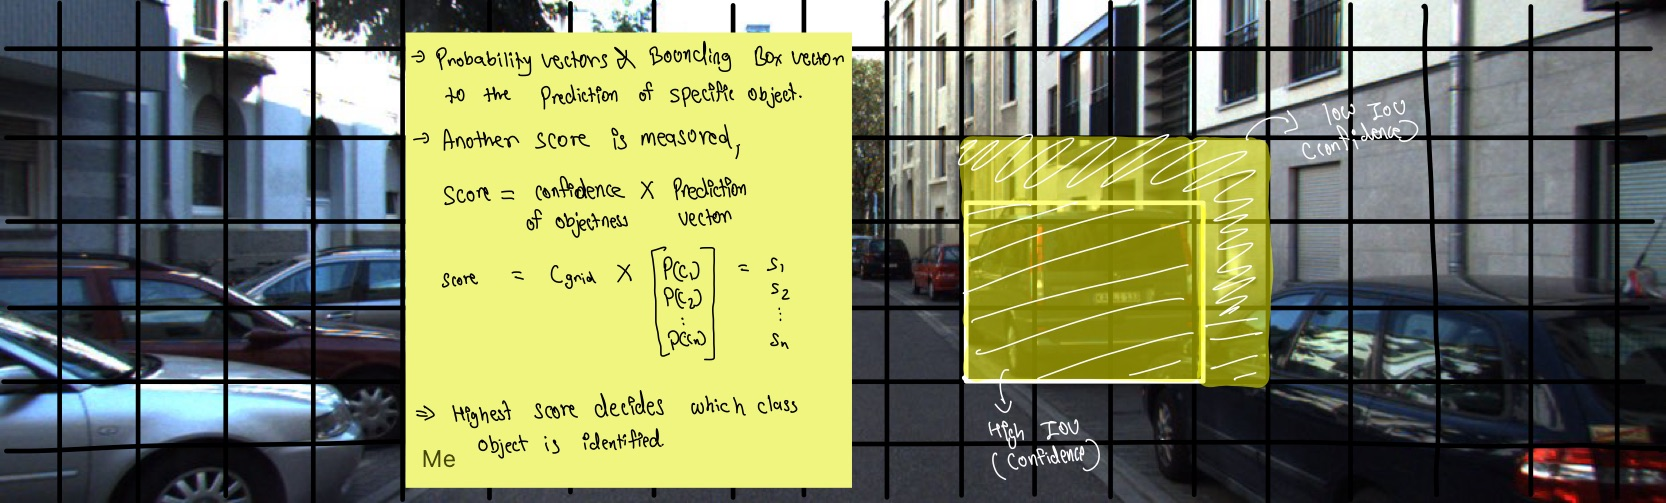 → Probability vectors ∝ Bounding Box vector
to the Prediction of specific object.
→ Another score is measured,
Score = confidence of objectness X Prediction vector
score = Cgrid X [P(C1) P(C2) ⋮ P(Cn)] = S1 S2 ⋮ Sn
⇒ Highest score decides which class
object is identified
Me
low IOU
(confidence)
High IOU
(confidence)